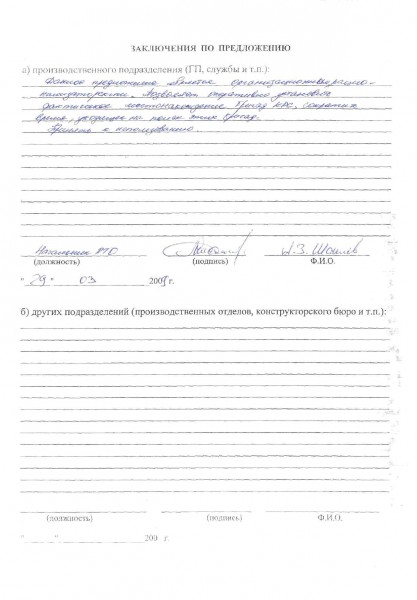 ЗАКЛЮЧЕНИЯ ПО ПРЕДЛОЖЕНИЮ
а) производственного подразделения (ГП, службы и т.п.):
Данное предложение является организационным рацио-
нализаторским. Позволяет оперативно установить
фактическое местонахождение бригад КРС, сократить
время, уходящее на поиск этих бригад.
Принято к использованию.
Начальник РТО
А.З.
(должность) (подпись) Ф.И.О.
" 29 " 03 2009 г.
б) других подразделений (производственных отделов, конструкторского бюро и т.п.):
(должность) (подпись) Ф.И.О.
" " 200 г.